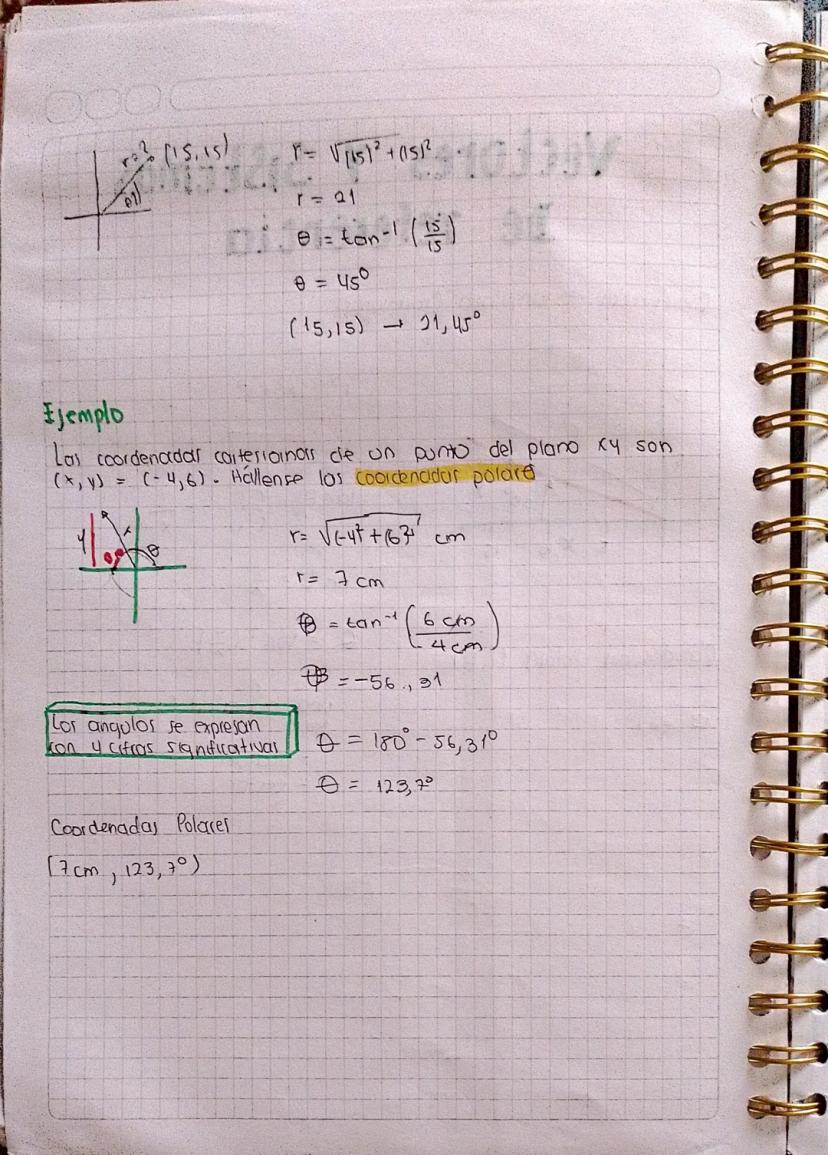 r=? (15,15)
θ?
r = √(15)² + (15)²
r = 21
θ = tan⁻¹ (15/15)
θ = 45°
(15,15) → 21,45°
Ejemplo
Las coordenadas cartesianas de un punto del plano xy son
(x,y) = (-4,6). Hállense las coordenadas polares
y r θ
r= √(-4² + (6)² cm
r= 7 cm
= tan⁻¹ (6 cm / -4 cm)
= -56,31
Los angulos se expresan
con 4 cifras significativas
θ = 180° - 56,31°
θ = 123,7°
Coordenadas Polares
(7cm, 123,7°)